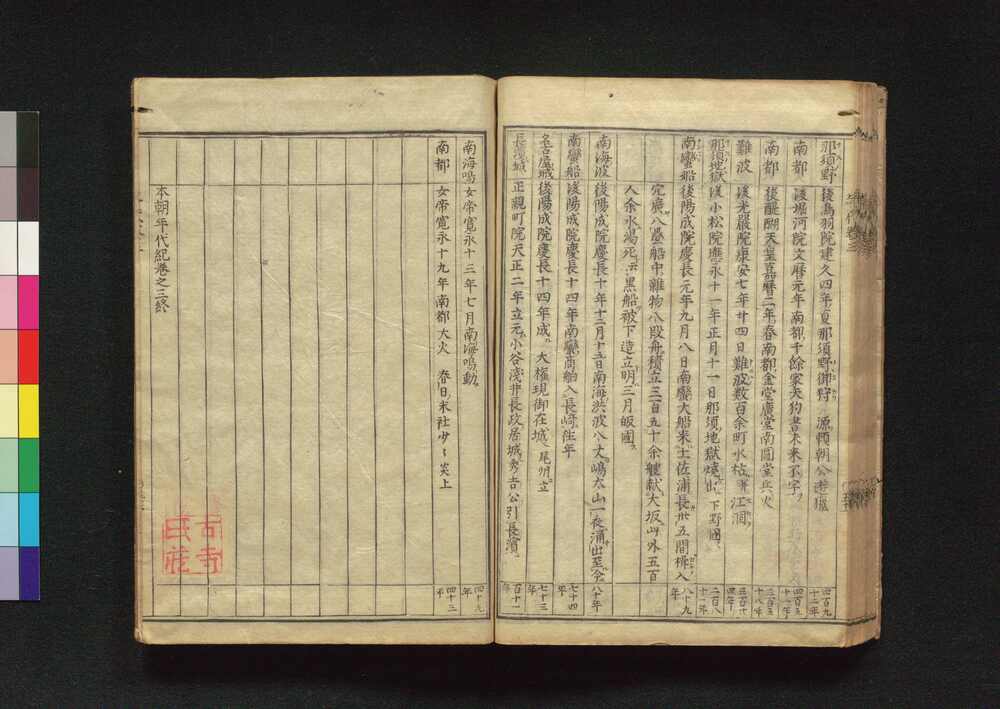 那須野 後鳥羽院建久四年夏那須野御狩 源頼朝公遊猟 四百九十二年
南都 後堀河院文暦元年南都千餘家天狗書未来不字 四百五十一年
南都 後醍醐天皇嘉暦二年春南都金堂廣堂南圓堂兵火 三百五十八年
難波 後光嚴院康安七年廿四日難波数百余町水枯 江涸
那須地獄 後小松院應永十一年正月十一日那須地獄焼出 下野國 二百八十一年
南蠻船 後陽成院慶長元年九月八日南蠻大船来土佐浦長卅五間楫入 八十九年
穴廣八疊船中雜物八段舟積立三百五十余艘献大坂此外五百
人余水渇死云黒船被下造立明三月皈國
南海波 後陽成院慶長十年十二月十五日南海洪波八丈嶋大山一夜涌出至今 八十年
南蠻船 後陽成院慶長十四年南蠻商舶入長﨑住年 七十四年
名古屋城 後陽成院慶長十四年成 大権現御在城 尾州立 七十三年
長濱城 正親町院天正二年立元小谷淺井長政居城秀吉公引長濱 百十一年
南海鳴 女帝寛永十三年七月南海鳴動 四十九年
南都 女帝寛永十九年南都大火 春日末社少々炎上 四十三年
本朝年代紀巻之三終